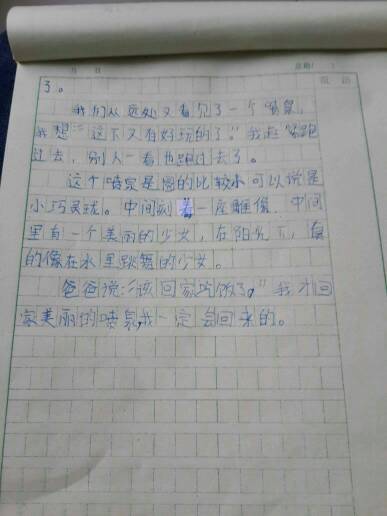 了。
我们从远处又看见了一个喷泉，
我想：“这下又有好玩的了。”我赶紧跑
过去，别人一看也跑过去了。
这个喷泉是圆的比较小可以说是
小巧灵珑。中间刻着一座雕像，中间
里有一个美丽的少女，在阳光下，真
的像在水里跳舞的少女。
爸爸说：“该回家吃饭了。”我才回
家美丽的喷泉，我一定会回来的。